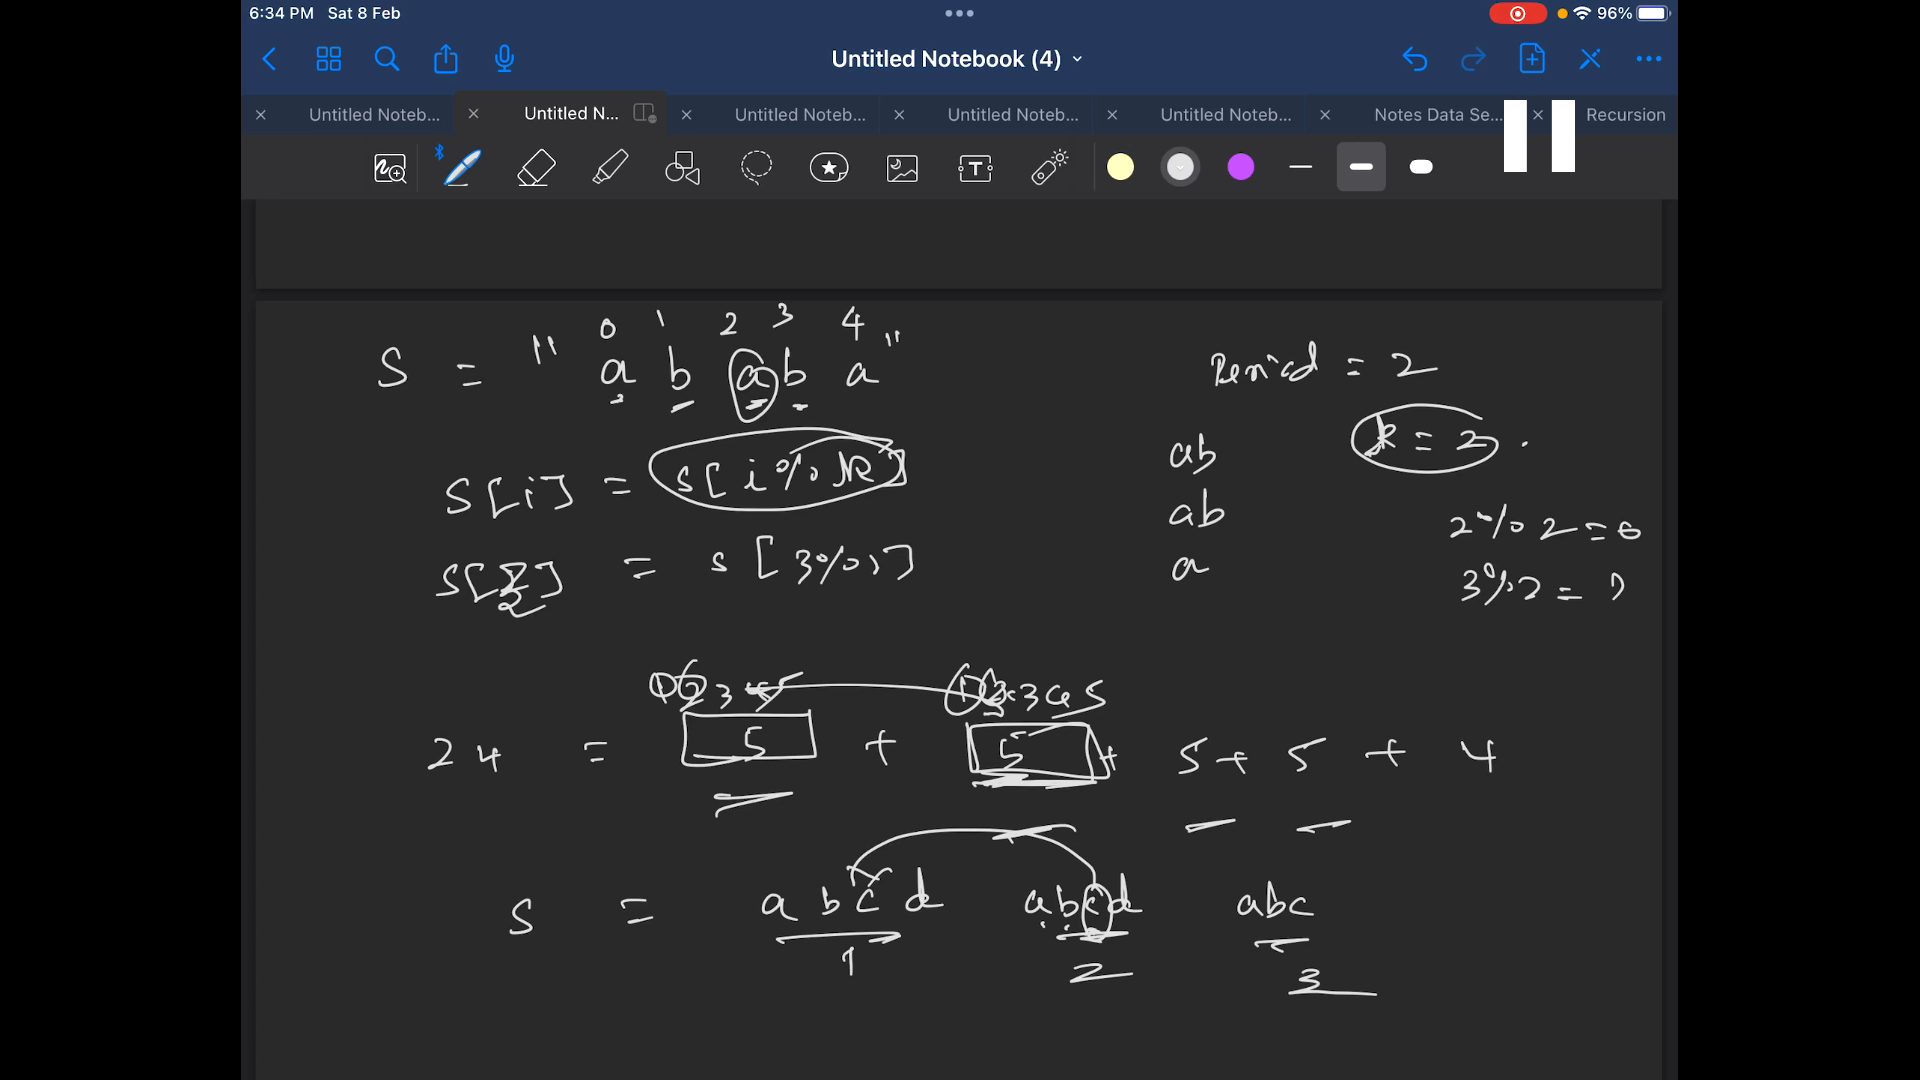 6:34 PM Sat 8 Feb
96%
Untitled Notebook (4)
Untitled Noteb... Untitled N... Untitled Noteb... Untitled Noteb... Untitled Noteb... Notes Data Se... Recursion
0 1 2 3 4
S = " a b a b a "
Period = 2
k = 2 .
S[i] = s[i%k]
ab
ab
a
2%2=0
3%2=1
= s[3%2]
1 2 3 4 5 1 2 3 4 5
24 = 5 + 5 + 5 + 5 + 4
S = a b c d abcd abc
1 2 3